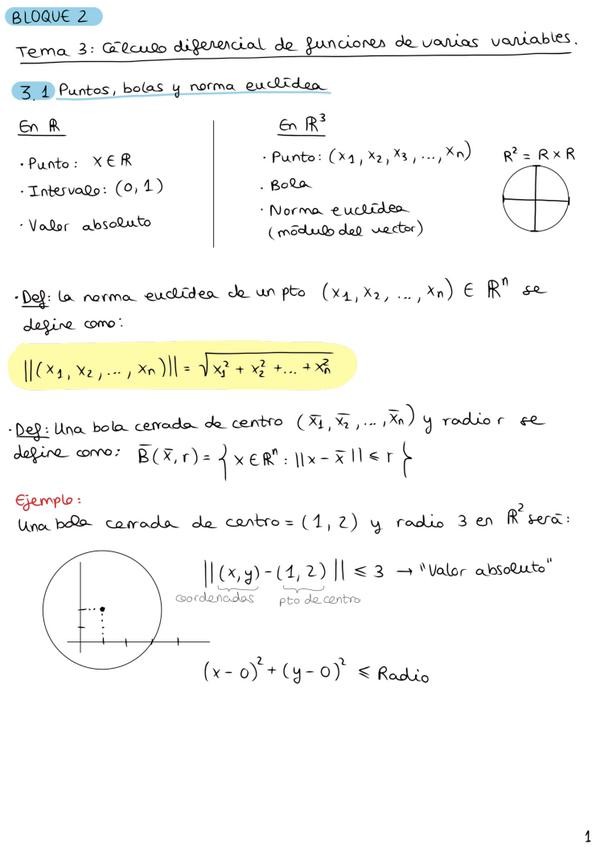 BLOQUE 2
Tema 3: Cálculo diferencial de funciones de varias variables.
3.1 Puntos, bolas y norma euclídea
En ℝ
· Punto: x ∈ ℝ
· Intervalo: (0, 1)
· Valor absoluto
En ℝ³
· Punto: (x₁, x₂, x₃, ..., xₙ)
· Bola
· Norma euclídea
(módulo del vector)
R² = R × R
· Def: La norma euclídea de un pto (x₁, x₂, ..., xₙ) ∈ ℝⁿ se
define como:
||(x₁, x₂, ..., xₙ)|| = √(x₁² + x₂² + ... + xₙ²)
· Def: Una bola cerrada de centro (x̄₁, x̄₂, ..., x̄ₙ) y radio r se
define como: B̄(x̄, r) = { x ∈ ℝⁿ : ||x - x̄|| ≤ r }
Ejemplo:
Una bola cerrada de centro = (1, 2) y radio 3 en ℝ² será:
||(x, y) - (1, 2)|| ≤ 3 → "Valor absoluto"
coordenadas pto de centro
(x - 0)² + (y - 0)² ≤ Radio
1